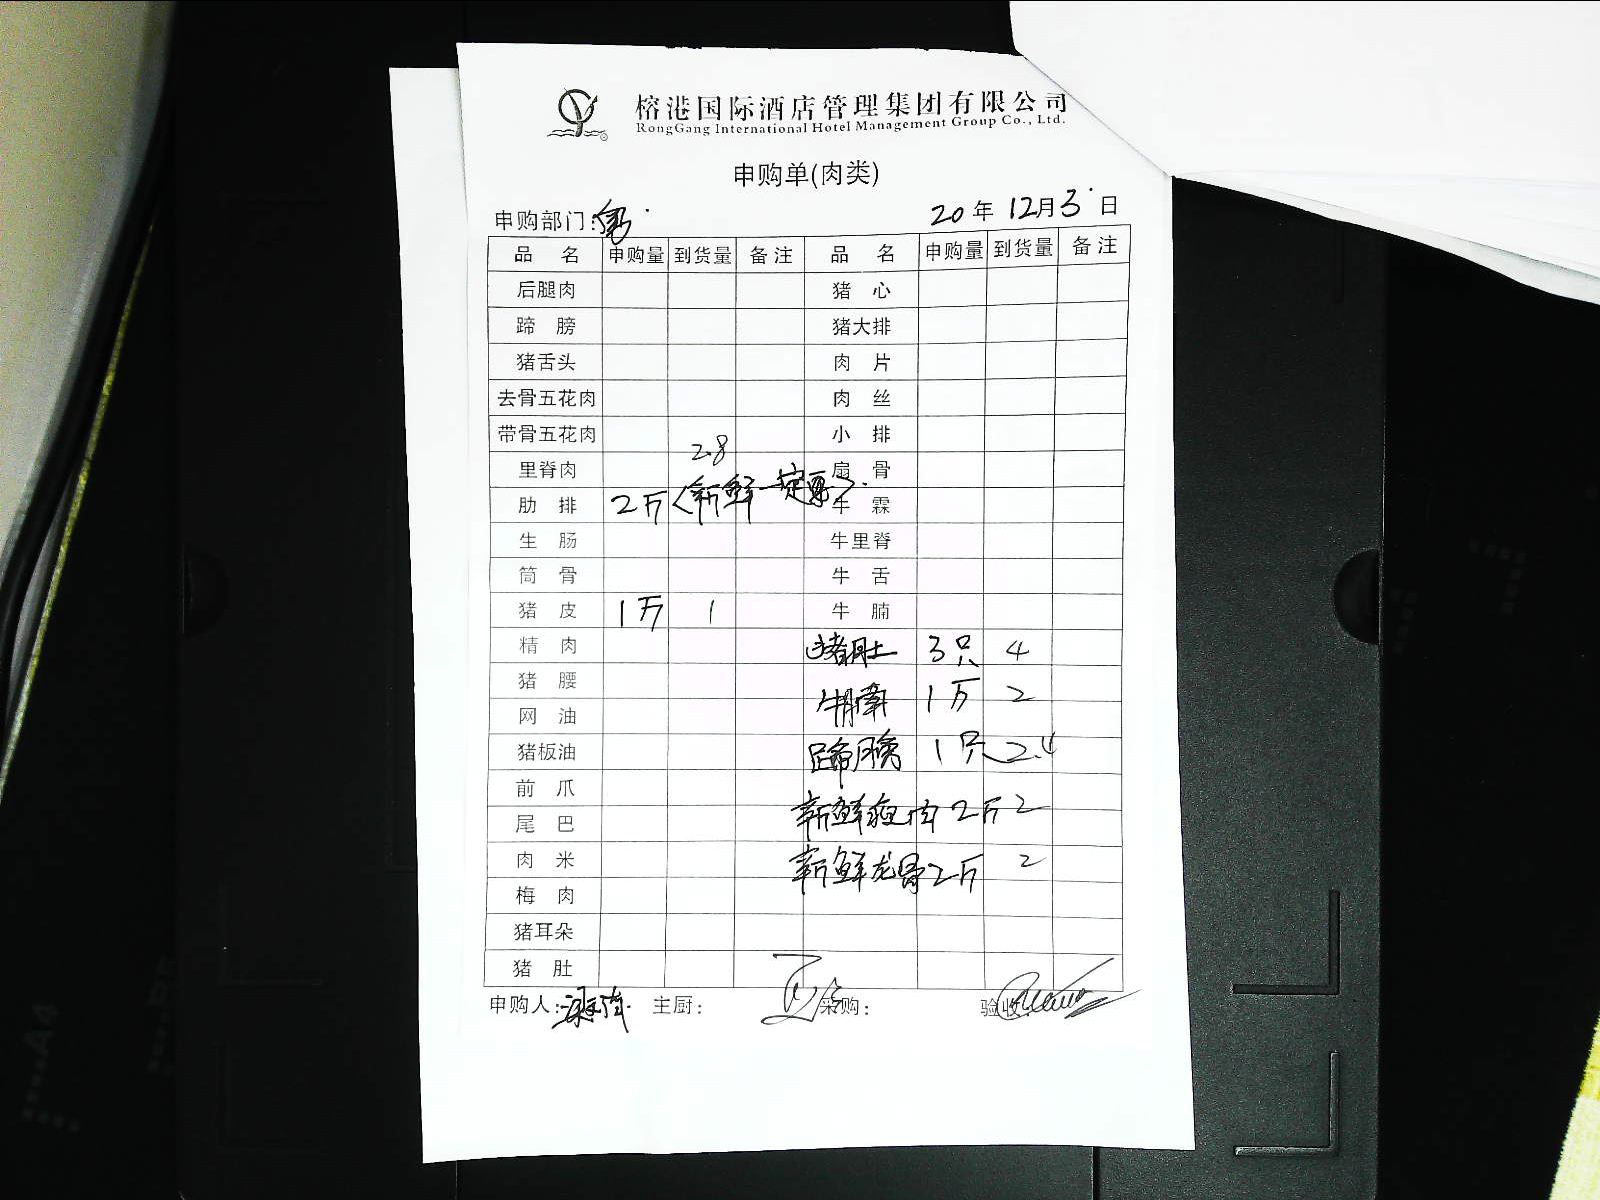 榕港国际酒店管理集团有限公司
RongGang International Hotel Management Group Co., Ltd.
申购单(肉类)
申购部门:
20年 12月3日
品 名 申购量 到货量 备注 品 名 申购量 到货量 备注
后腿肉 猪 心
蹄 膀 猪大排
猪舌头 肉 片
去骨五花肉 肉 丝
带骨五花肉 小 排
2.8
里脊肉 扇 骨
肋 排 2斤<新鲜一定要>. 牛 霖
生 肠 牛里脊
筒 骨 牛 舌
猪 皮 1斤 1 牛 腩
精 肉 猪肚 3只 4
猪 腰 牛腩 1斤 2
网 油
猪板油 蹄膀 1只 2.4
前 爪
尾 巴 新鲜瘦肉 2斤 2
肉 米 新鲜龙骨 2斤 2
梅 肉
猪耳朵
猪 肚
申购人: 主厨: 采购: 验收: